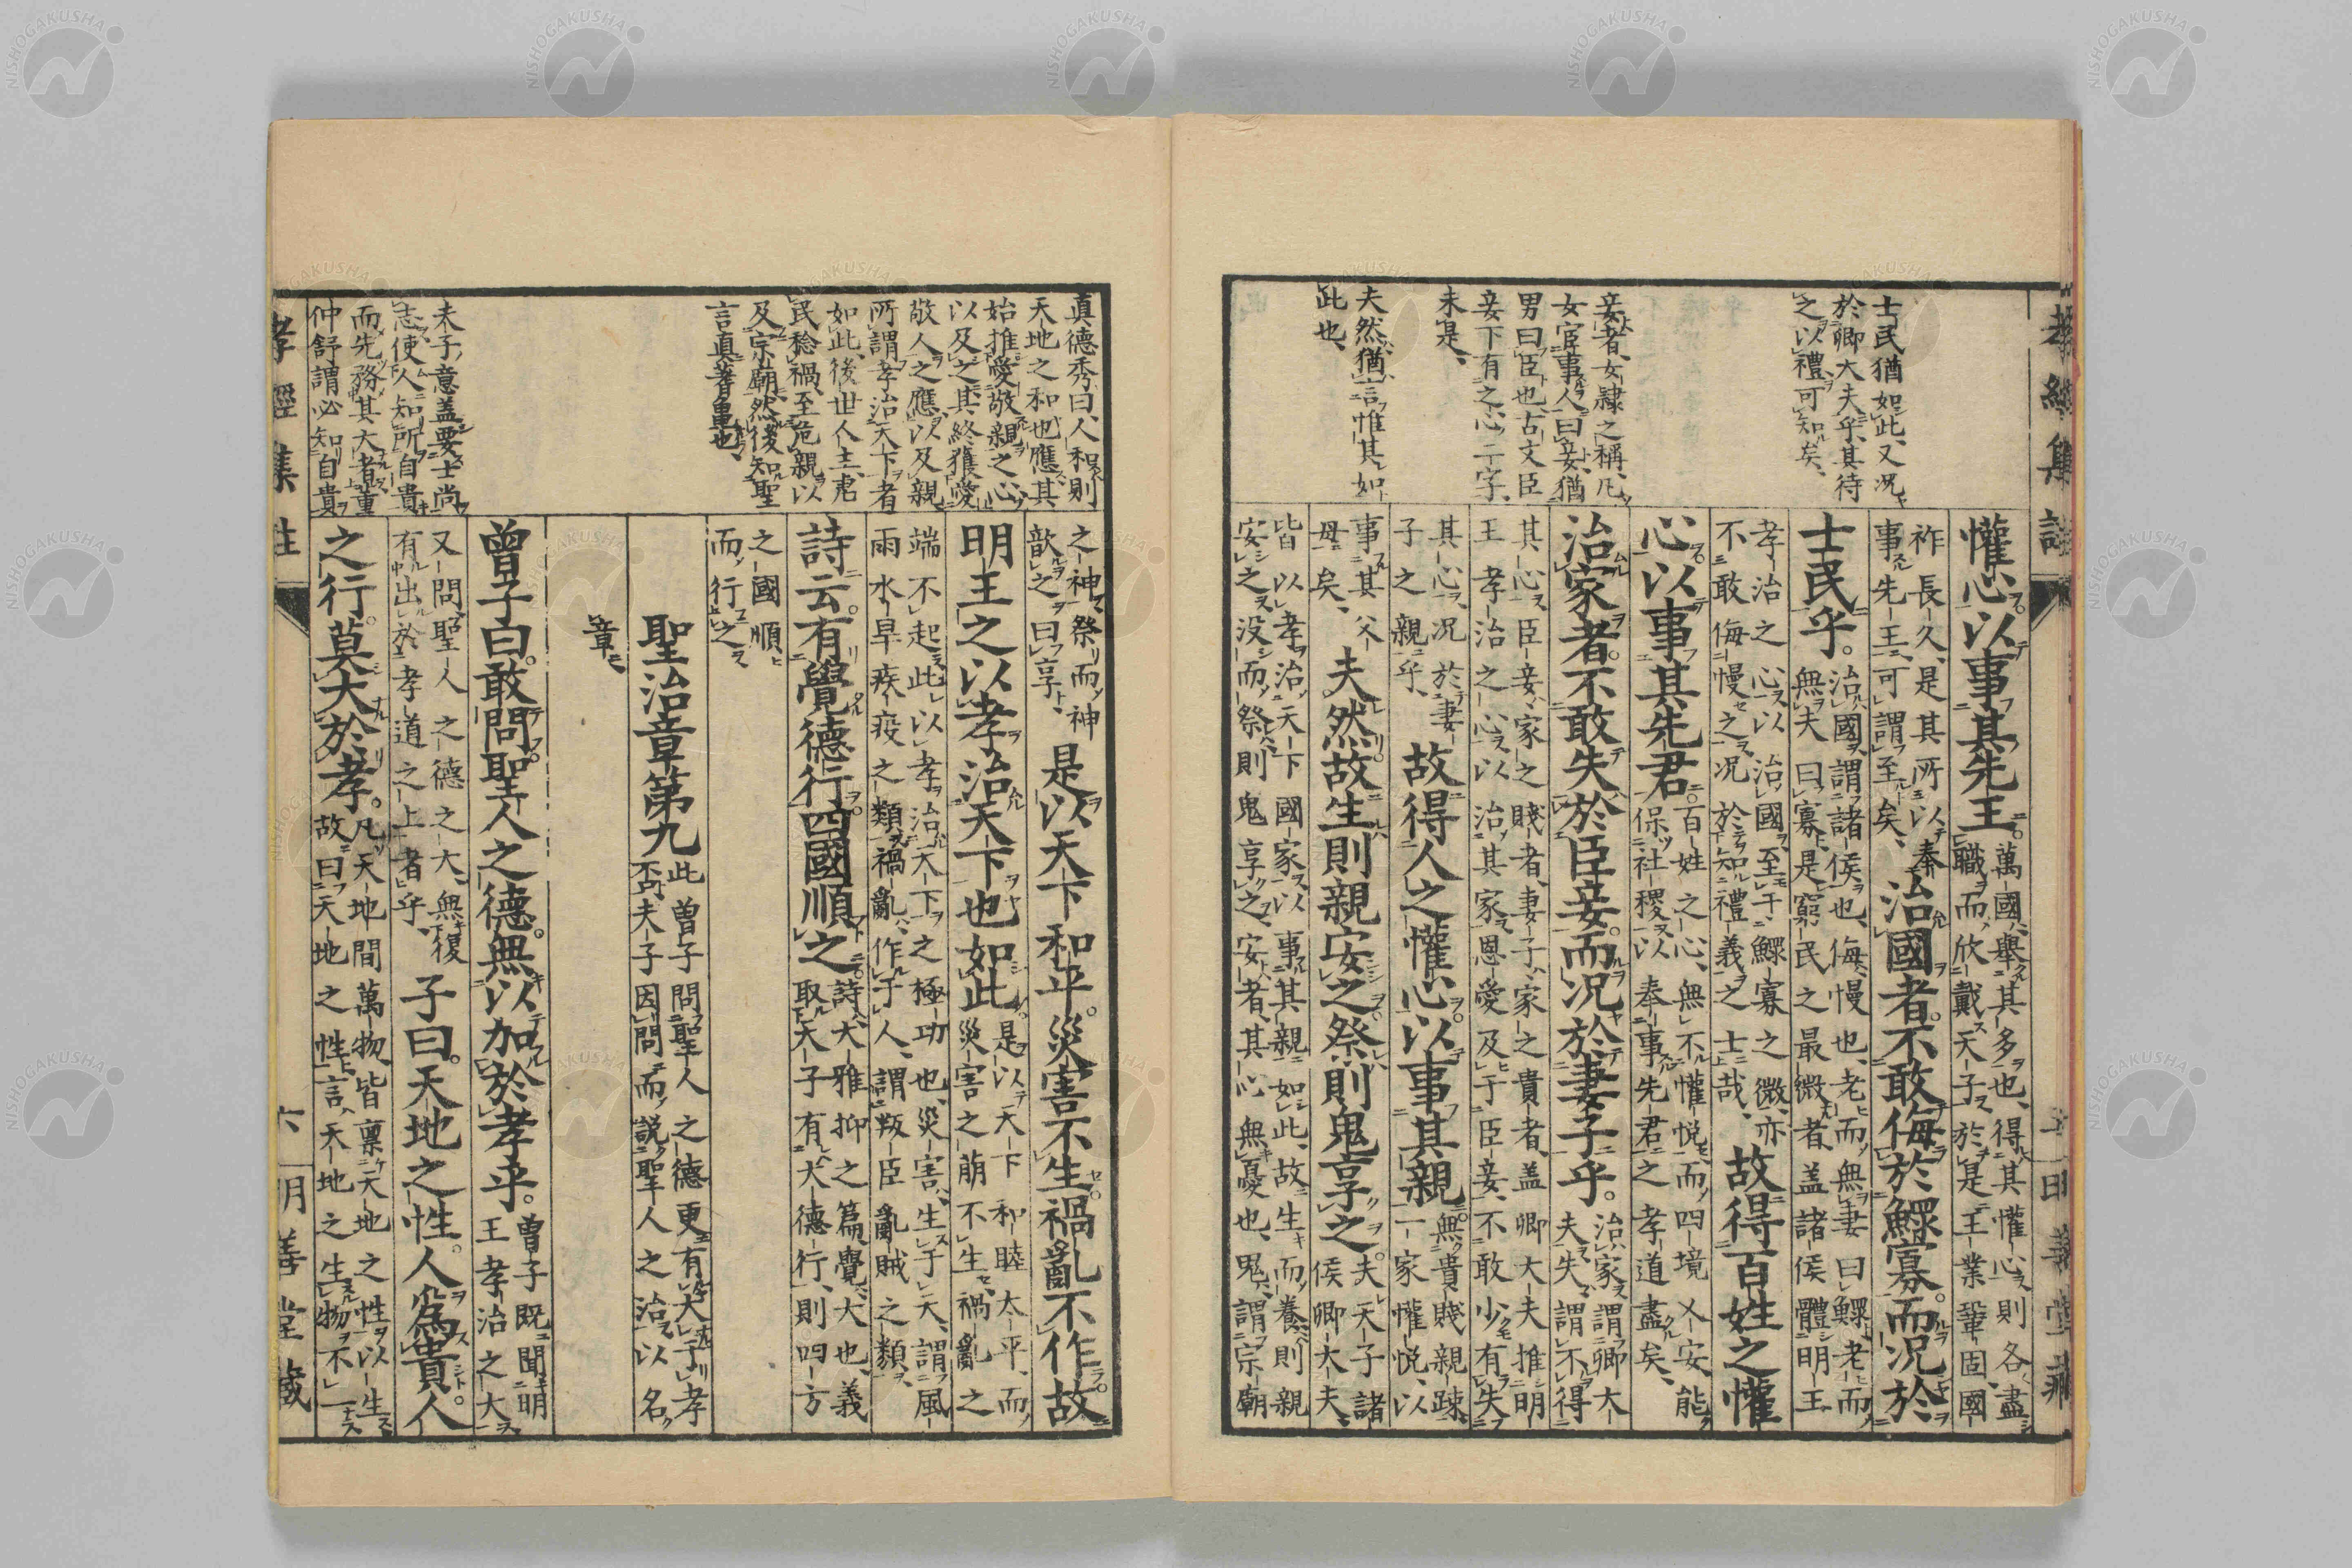 孝經集註
士民猶如此、又况
於卿大夫乎、其待
之以禮可知矣、
妾者、女隷之稱、凡
女宦事人曰妾、猶
男曰臣也、古文臣
妾下有之心二字、
未是、
夫然猶言惟其如
此也、
懽心。以事其先王。
萬國、舉其多也、得其懽心則各盡
職而欣戴天子、於是王業鞏固、國
祚長久、是其所以奉
事先王可謂至矣、
治國者。不敢侮於鰥寡。而况於
士民乎。
治國、謂諸侯也、侮慢也、老而無妻曰鰥、老而
無夫曰寡、是窮民之最微者、盖諸侯體明王
孝治之心以治國、至于鰥寡之微、亦
不敢侮慢之、况於知禮義之士哉、
故得百姓之懽
心。以事其先君。
百姓之心、無不懽悅而四境乂安、能
保社稷以奉事先君之孝道盡矣、
治家者。不敢失於臣妾。而况於妻子乎。
治家、謂卿大
夫、失、謂不得
其心、臣妾、家之賤者、妻子、家之貴者、盖卿大夫推明
王孝治之心以治其家、恩愛及于臣妾、不敢少有失
其心、况於妻
子之親乎、
故得人之懽心。以事其親。
無貴賤親疎、
一家懽悅、以
事其父
母矣、
夫然。故生則親安之。祭則鬼享之。
夫天子諸
侯卿大夫、
皆以孝治天下國家、以事其親如此、故生而養則親
安之、没而祭則鬼享之、安者、其心無憂也、鬼、謂宗廟
之神、祭而神
歆之曰享、
是以天下和平。災害不生。禍亂不作。故
明王之以孝治天下也如此。
是以天下和睦太平、而
災害之萠不生、禍亂之
端不起、此以孝治天下之極功也、災害、生于天、謂風
雨水旱疾疫之類、禍亂、作于人、謂叛臣亂賊之類、
詩云。有覺德行。四國順之。
詩、大雅抑之篇、覺、大也、義
取天子有大德行、則四方
之國順
而行之
聖治章第九
此曾子問聖人之德更有大于孝
否、夫子因問而說聖人之治以名
章、
曾子曰。敢問聖人之德。無以加於孝乎。
曾子既聞明
王孝治之大、
又問聖人之德之大、無復
有出於孝道之上者乎、
子曰。天地之性。人爲貴。人
之行。莫大於孝。
凡天地間萬物、皆稟天地之性以生、
故曰天地之性、言天地之生物不一
眞德秀曰、人和則
天地之和也應、其
始推愛敬親之心
以及之、其終獲愛
敬人之應以及親
所謂孝治天下者
如此、後世人主、虐
民稔禍、至危親以
及宗廟、然後知聖
言眞蓍龜也、
朱子意盖要士尚
志使人知所自貴
而先務其大者、董
仲舒謂必知自貴
孝經集註
六
明善堂藏